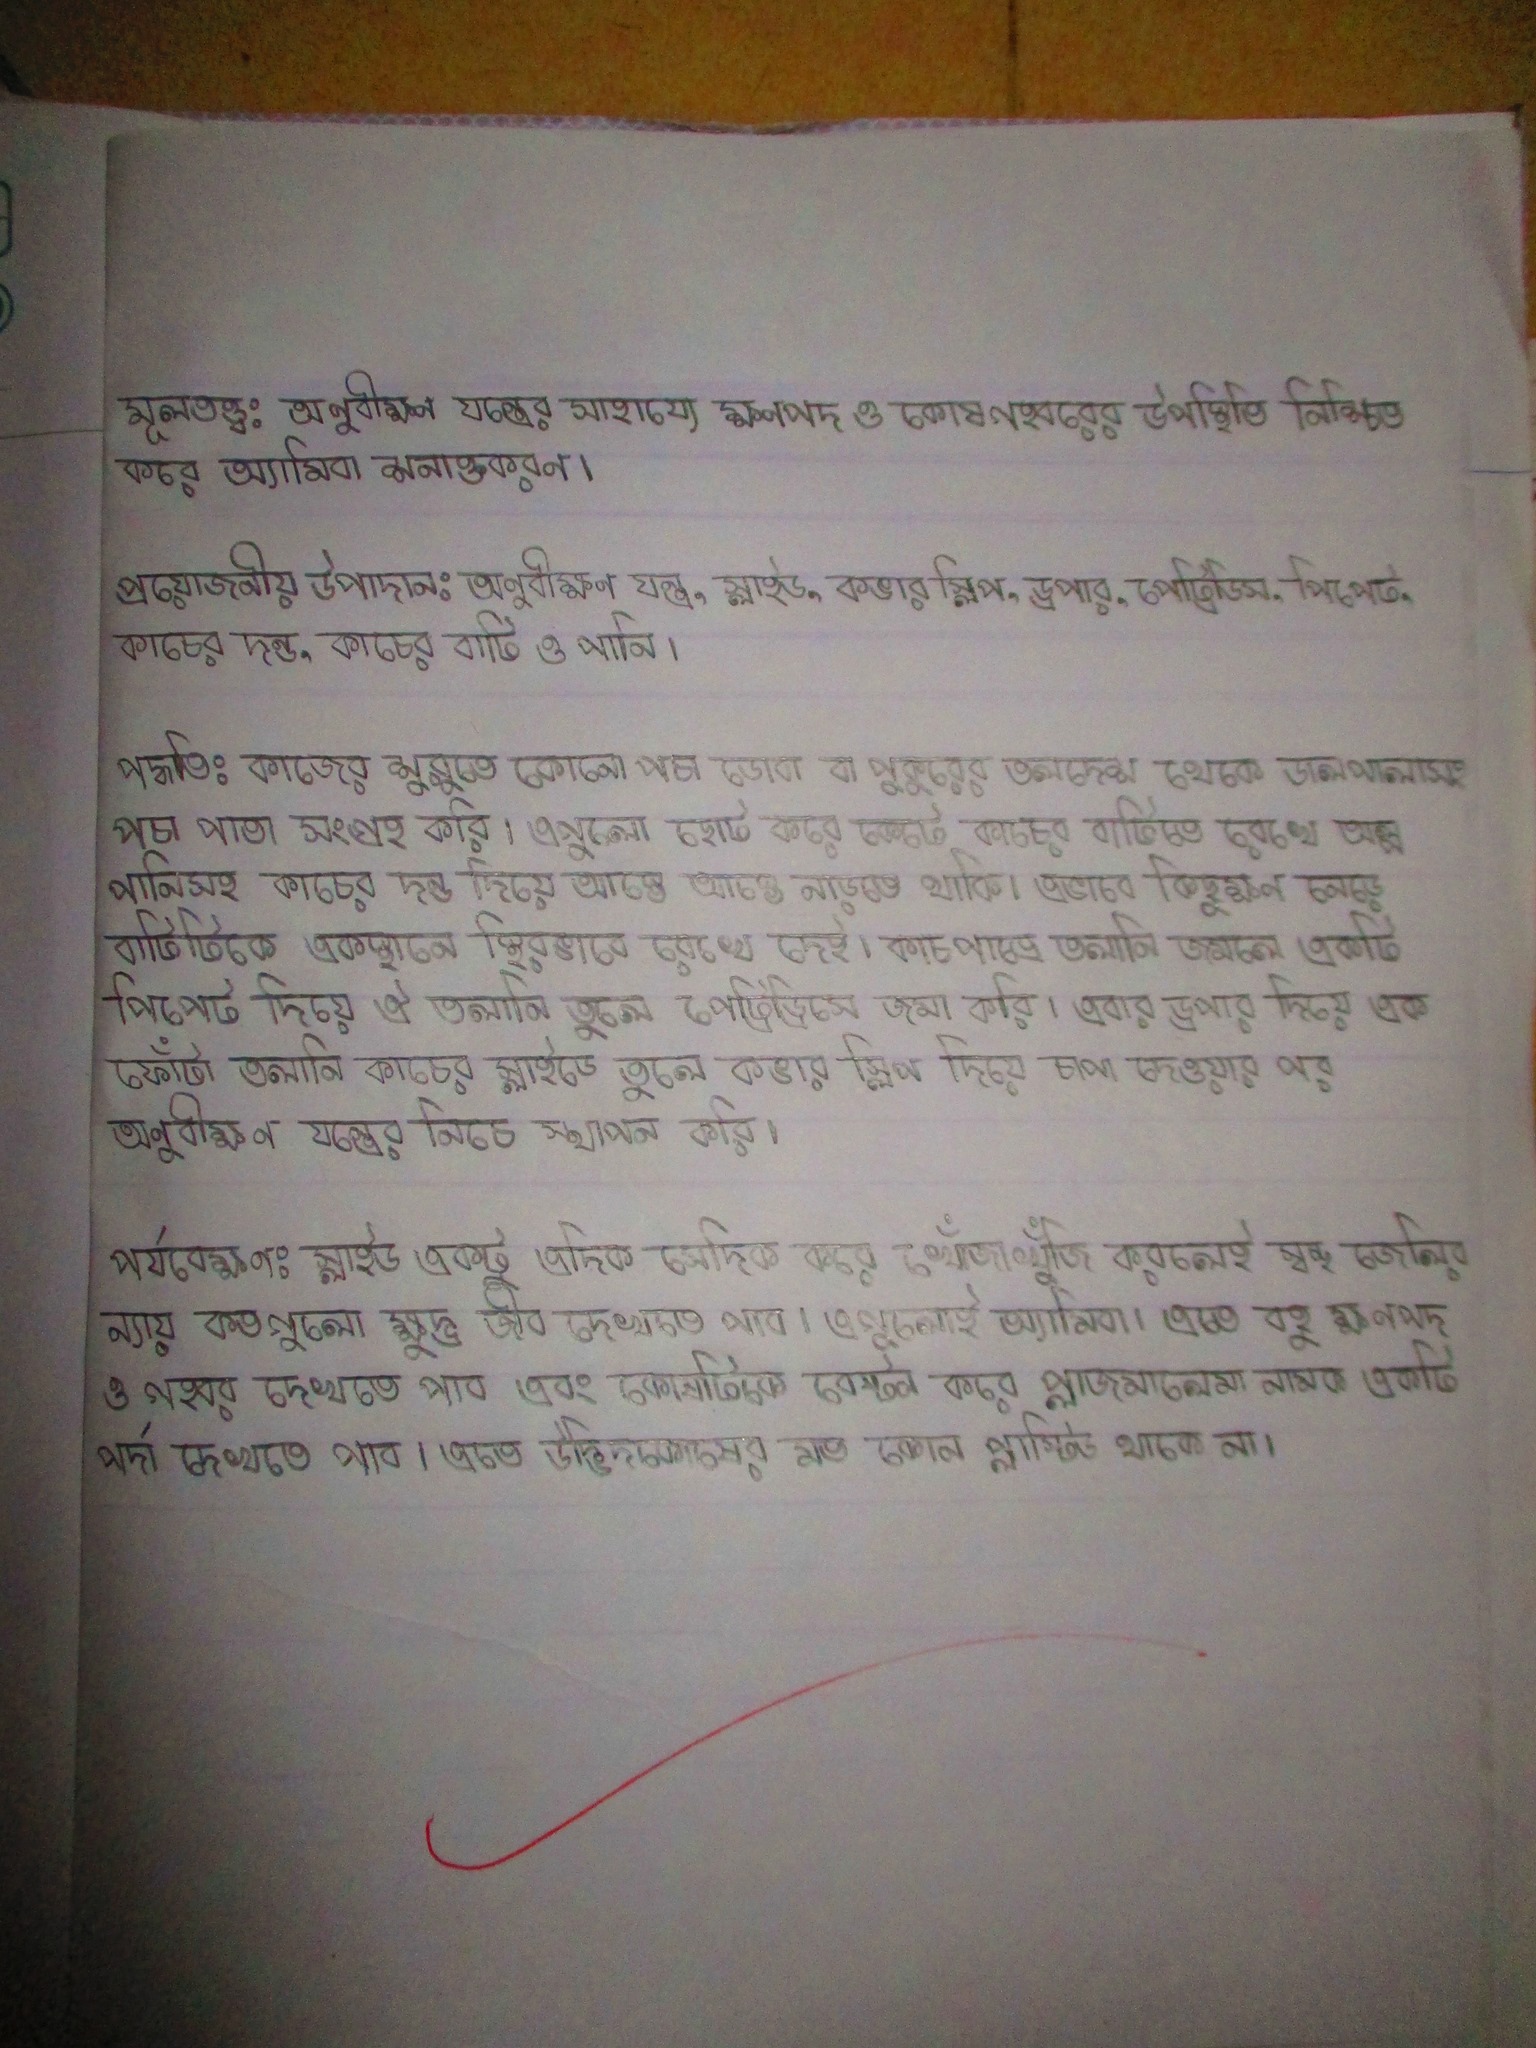 মূলতত্ত্বঃ অণুবীক্ষণ যন্ত্রের সাহায্যে ক্ষণপদ ও কোষগহ্বরের উপস্থিতি নিশ্চিত
করে অ্যামিবা শনাক্তকরণ।
প্রয়োজনীয় উপাদানঃ অণুবীক্ষণ যন্ত্র, স্লাইড, কভার স্লিপ, ড্রপার, পেট্রিডিস, পিপেট,
কাচের দন্ড, কাচের বাটি ও পানি।
পদ্ধতিঃ কাজের শুরুতে কোনো পচা ডোবা বা পুকুরের তলদেশ থেকে ডালপালাসহ
পচা পাতা সংগ্রহ করি। এগুলো ছোট করে কেটে কাচের বাটিতে রেখে অল্প
পানিসহ কাচের দন্ড দিয়ে আস্তে আস্তে নাড়তে থাকি। এভাবে কিছুক্ষণ নেড়ে
বাটিটিকে একস্থানে স্থিরভাবে রেখে দেই। কাচপাত্রে তলানি জমলে একটি
পিপেট দিয়ে ঐ তলানি তুলে পেট্রিড্রিসে জমা করি। এবার ড্রপার দিয়ে এক
ফোঁটা তলানি কাচের স্লাইডে তুলে কভার স্লিপ দিয়ে চাপা দেওয়ার পর
অণুবীক্ষণ যন্ত্রের নিচে স্থাপন করি।
পর্যবেক্ষণঃ স্লাইড একটু এদিক সেদিক করে খোঁজাখুঁজি করলেই স্বচ্ছ জেলির
ন্যায় কতগুলো ক্ষুদ্র জীব দেখতে পাব। এগুলোই অ্যামিবা। এতে বহু ক্ষণপদ
ও গহ্বর দেখতে পাব এবং কোষটিকে বেষ্টন করে প্লাজমালেমা নামক একটি
পর্দা দেখতে পাব। এতে উদ্ভিদকোষের মত কোন প্লাস্টিড থাকে না।